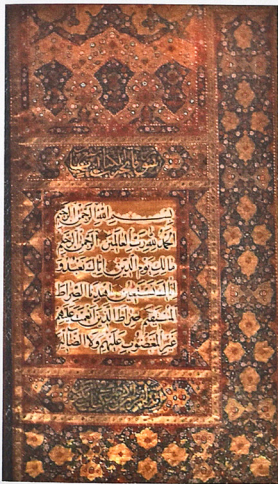 بسم الله الرحمن الرحيم
الحمد لله رب العالمين الرحمن الرحيم
مالك يوم الدين إياك نعبد و
إياك نستعين اهدنا الصراط
المستقيم صراط الذين أنعمت عليهم
غير المغضوب عليهم ولا الضالين